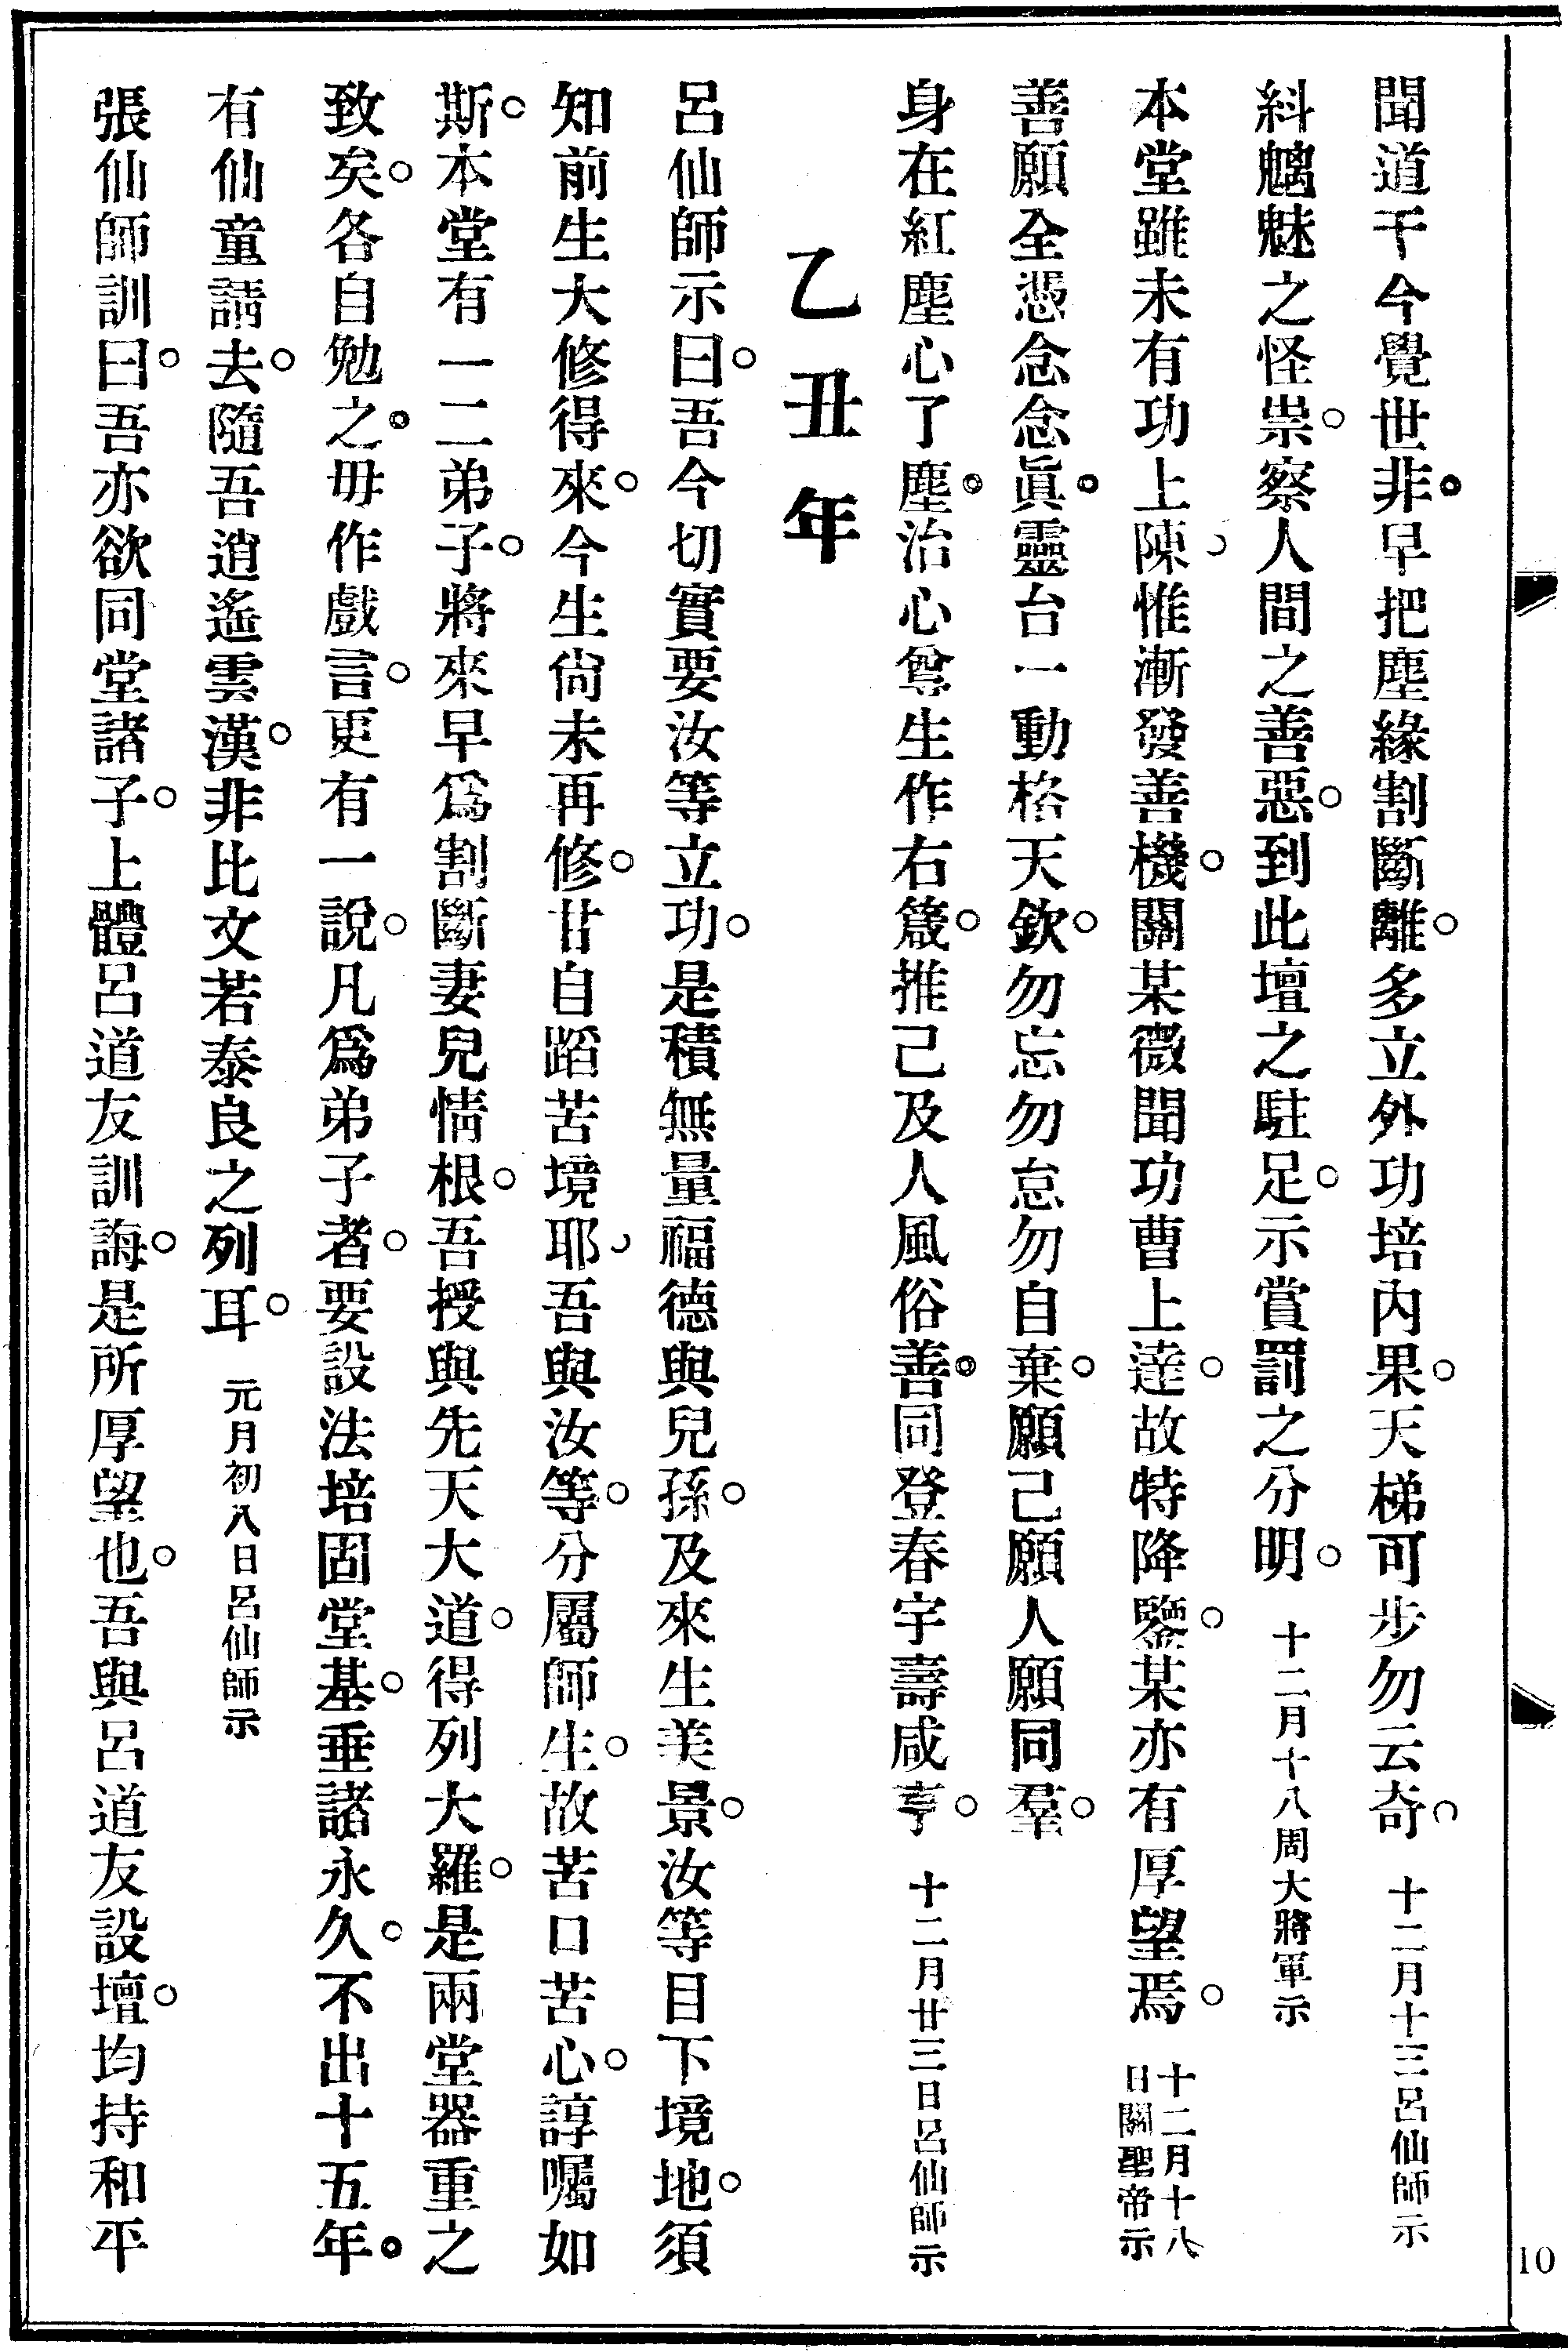 聞道干今覺世非。早把塵緣割斷離。多立外功培內果。天梯可步勿云奇。 十二月十三呂仙師示
糾魑魅之怪祟。察人間之善惡。到此壇之駐足。示賞罰之分明。 十二月十八周大將軍示
本堂雖未有功上陳。惟漸發善機。關某微聞功曹上達。故特降鑒。某亦有厚望焉。 十二月十八日關聖帝示
善願全憑念念眞。靈台一動格天欽。勿忘勿怠勿自棄。願己願人願同羣。
身在紅塵心了塵。治心尊生作右箴。推己及人風俗善。同登春宇壽咸亨。 十二月廿三日呂仙師示
乙丑年
呂仙師示曰。吾今切實要汝等立功。是積無量福德與兒孫。及來生美景。汝等目下境地。須
知前生大修得來。今生尙未再修。甘自蹈苦境耶。吾與汝等。分屬師生。故苦口苦心。諄囑如
斯。本堂有一二弟子。將來早爲割斷妻兒情根。吾授與先天大道。得列大羅。是兩堂器重之
致矣。各自勉之。毋作戲言。更有一說。凡爲弟子者。要設法培固堂基。垂諸永久。不出十五年。
有仙童請去。隨吾逍遙雲漢。非比文若泰良之列耳。 元月初八日呂仙師示
張仙師訓曰。吾亦欲同堂諸子。上體呂道友訓誨。是所厚望也。吾與呂道友設壇。均持和平
10